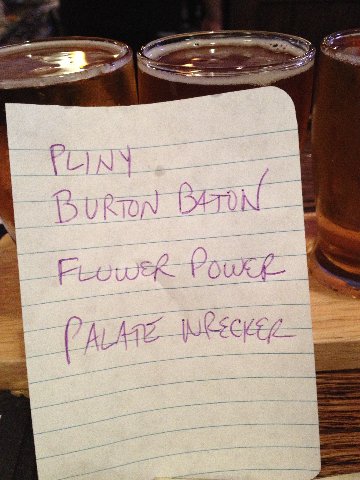 PLINY
BURTON BATON
FLOWER POWER
PALATE WRECKER